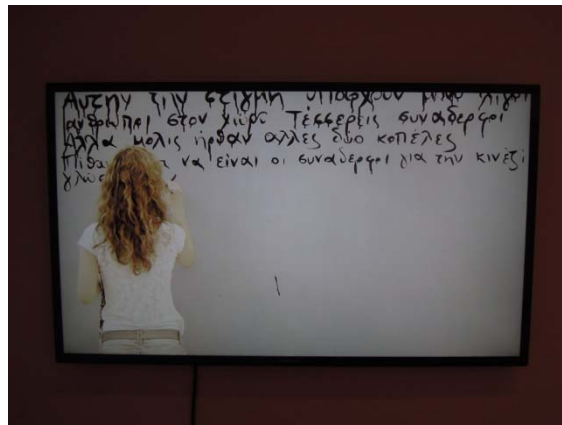 Αυτην την στιγμη υπαρχουν μονο λιγοι
ανθρωποι στον χωρο Τέσσερεις συναδερφοι
Αλλα μολις ηρθαν αλλες δυο κοπέλες
να είναι οι συναδερφοι για την κινέζι